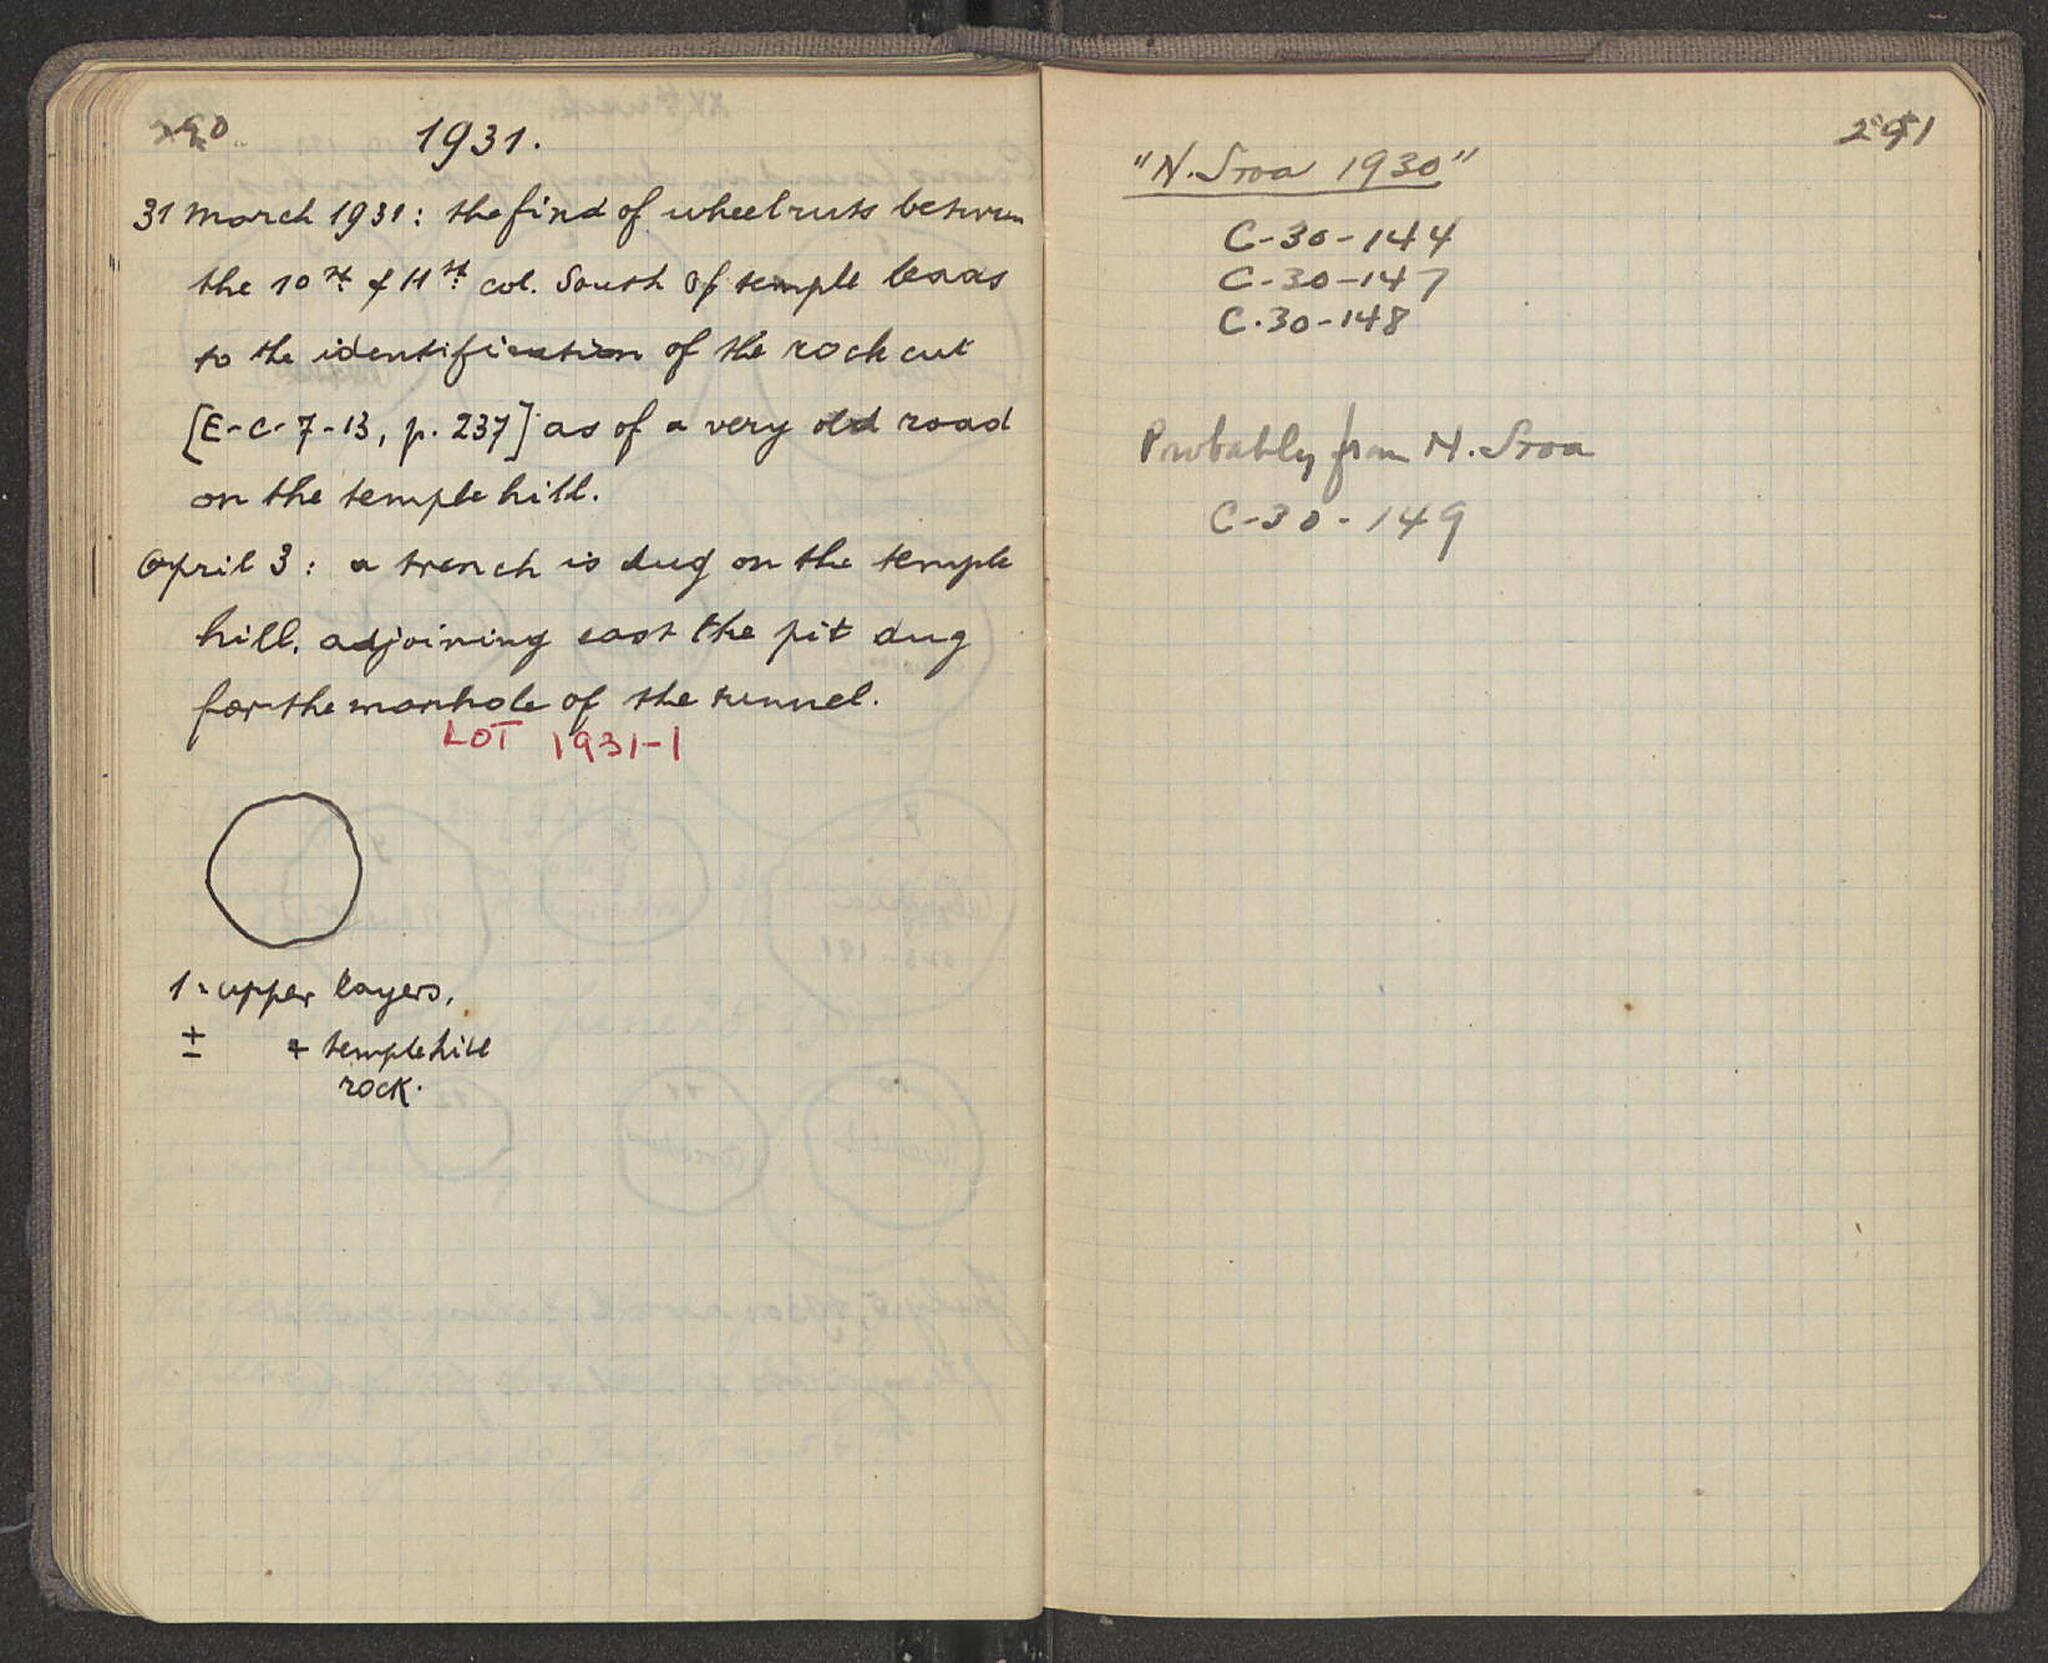 290
1931.
31 March 1931: the find of wheelruts between
the 10st. & 11st. col. South of temple leads
to the identification of the rock cut
[E-C-7-13, p. 237] as of a very old road
on the temple hill.
April 3: a trench is dug on the temple
hill. adjoining east the pit dug
for the manhole of the tunnel.
LOT 1931-1
1 = upper layers,
± + temple hill
rock.
291
"N. Stoa 1930"
C-30-144
C-30-147
C.30-148
Probably from N. Stoa
C-30-149